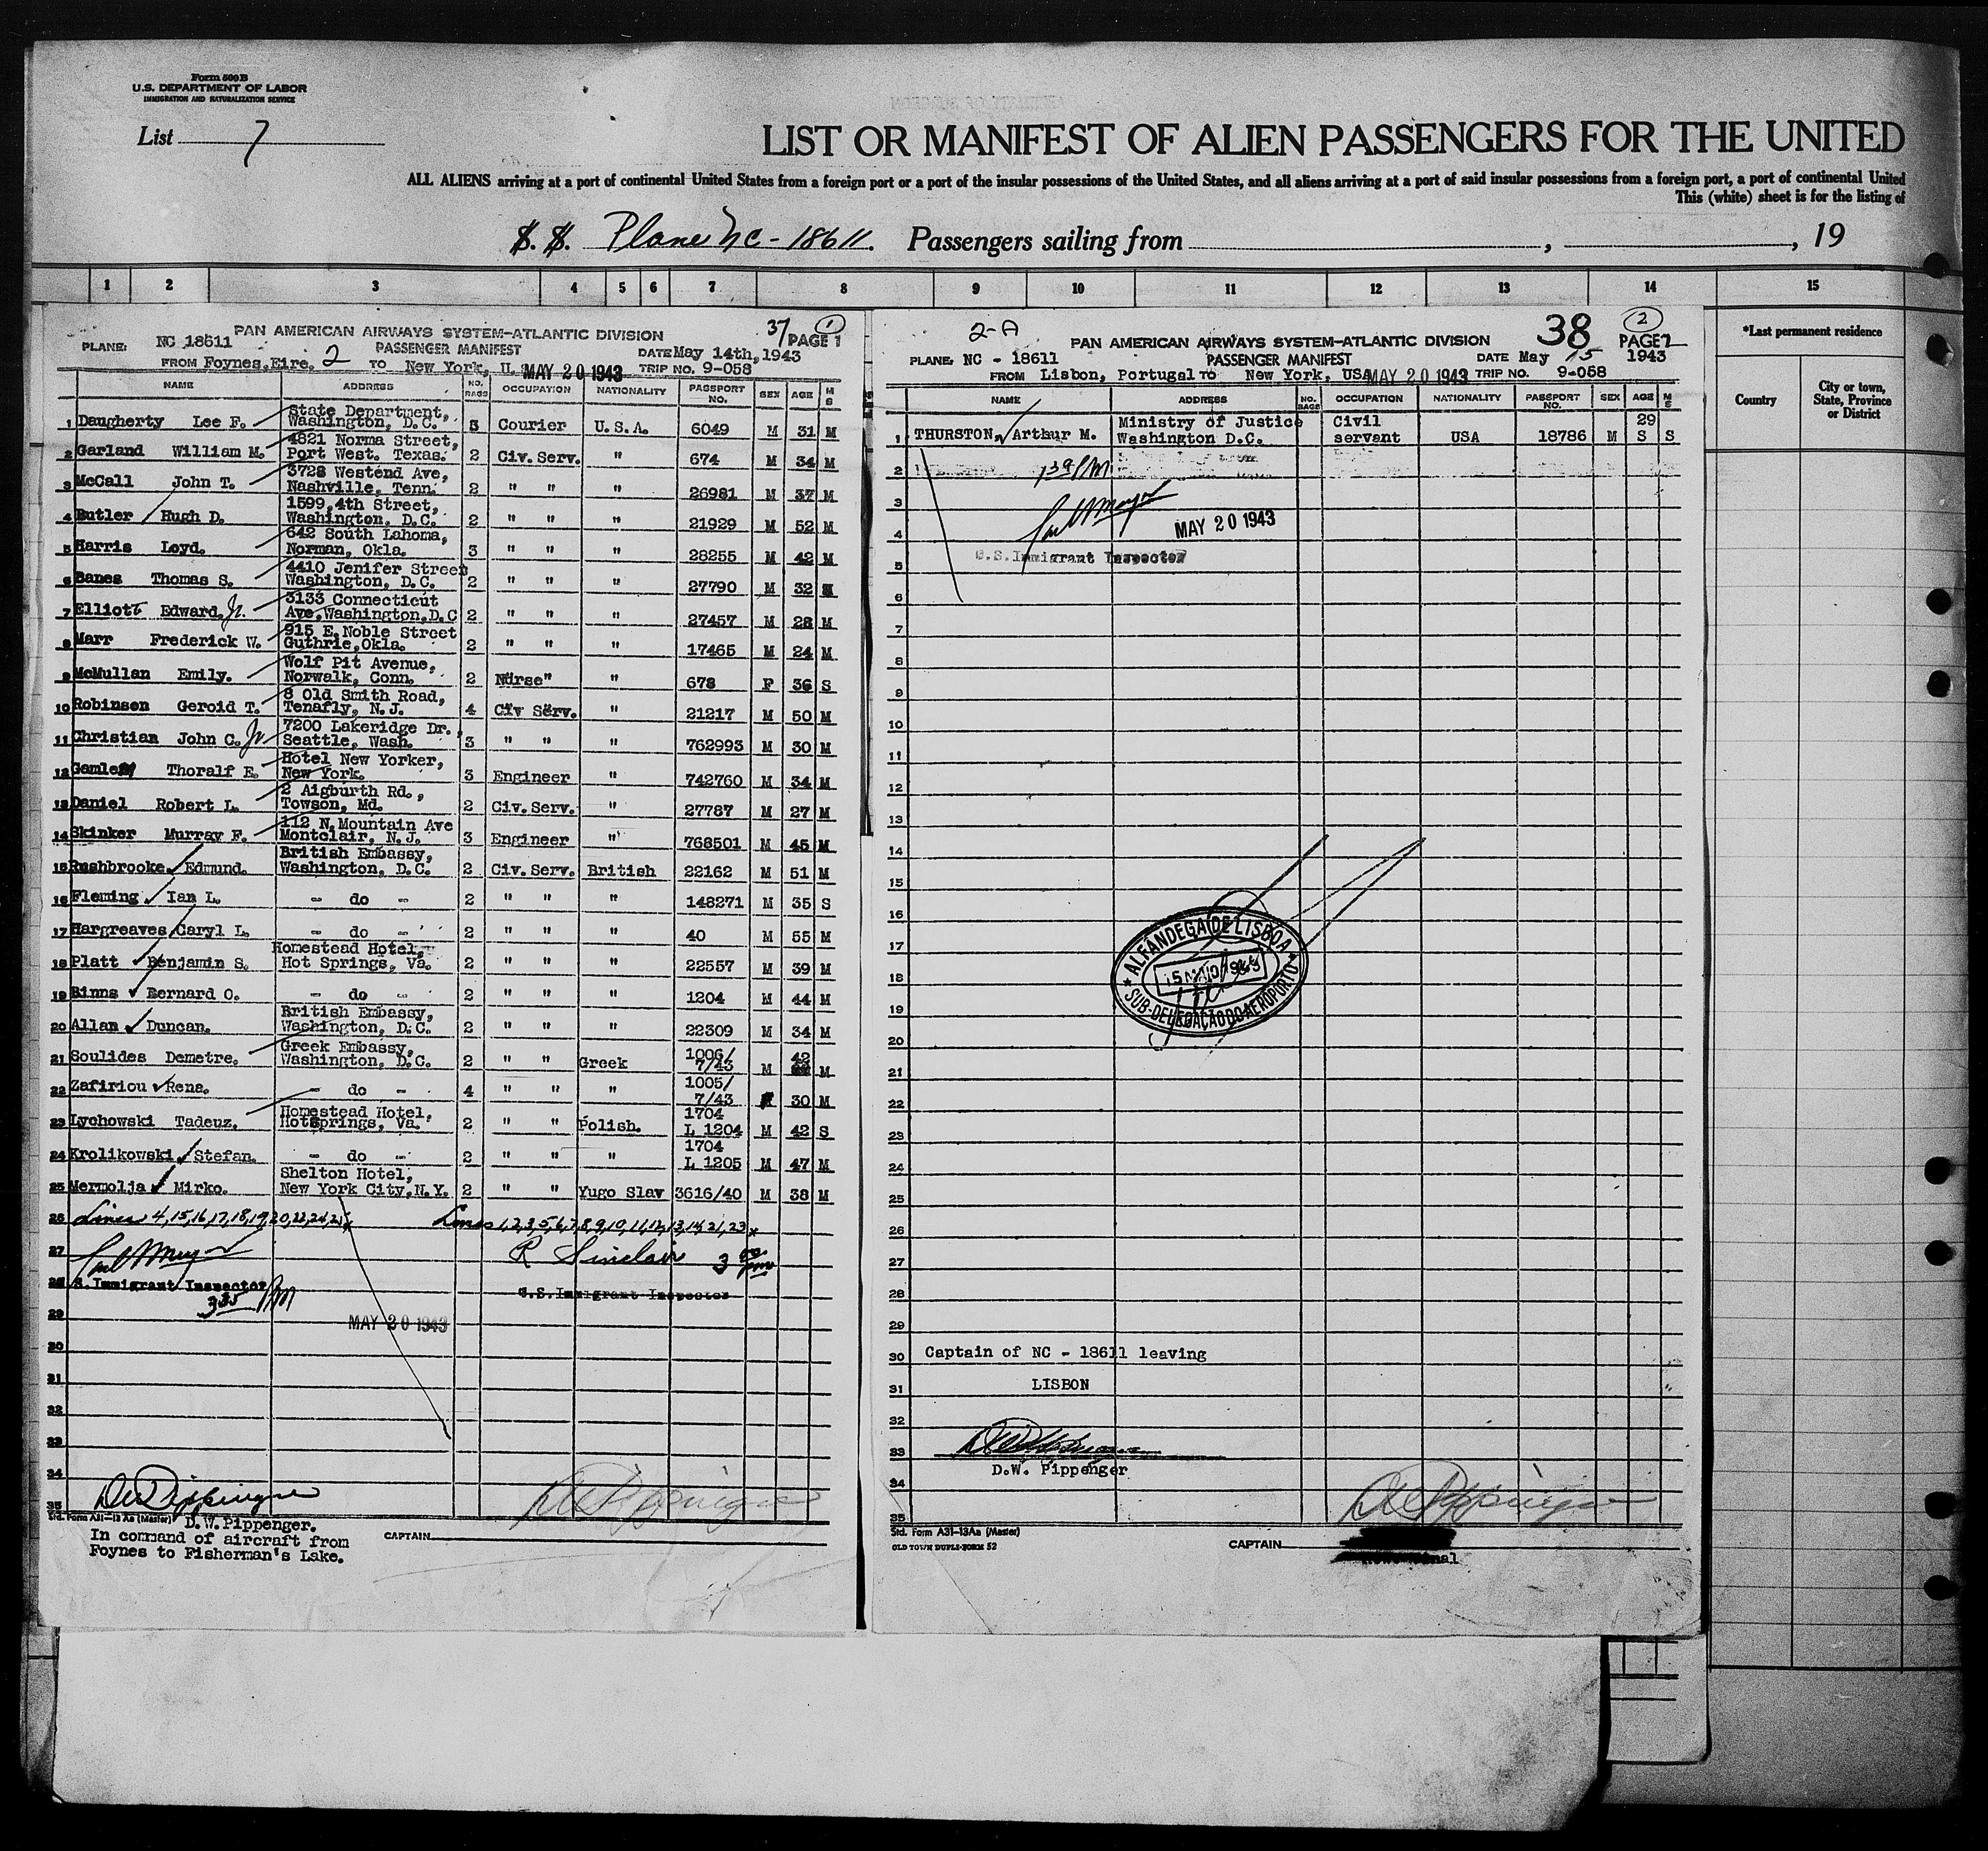 Form 500 B
U.S. DEPARTMENT OF LABOR
IMMIGRATION AND NATURALIZATION SERVICE
List 7
LIST OR MANIFEST OF ALIEN PASSENGERS FOR THE UNITED
ALL ALIENS arriving at a port of continental United States from a foreign port or a port of the insular possessions of the United States, and all aliens arriving at a port of said insular possessions from a foreign port, a port of continental United
This (white) sheet is for the listing of
S. S. Plane NC-18611. Passengers sailing from , , 19
1 2 3 4 5 6 7 8 9 10 11 12 13 14 15
*Last permanent residence
Country City or town, State, Province or District
PAN AMERICAN AIRWAYS SYSTEM-ATLANTIC DIVISION 37 1 PAGE 1
PLANE: NC 18611 PASSENGER MANIFEST DATE May 14th, 1943
FROM Foynes, Eire. 2 TO New York, U. MAY 20 1943 TRIP NO. 9-058
NAME ADDRESS NO. BAGS OCCUPATION NATIONALITY PASSPORT NO. SEX AGE M S
1 Daugherty Lee F. State Department, Washington, D.C. 5 Courier U.S.A. 6049 M 31 M
2 Garland William M. 4821 Norma Street, Port West. Texas. 2 Civ. Serv. " 674 M 34 M
3 McCall John T. 3728 Westend Ave, Nashville, Tenn. 2 " " " 26981 M 37 M
4 Butler Hugh D. 1599, 4th Street, Washington, D.C. 2 " " " 21929 M 52 M
5 Harris Loyd. 642 South Lahoma, Norman, Okla. 3 " " " 28255 M 42 M
6 Banes Thomas S. 4410 Jenifer Street Washington, D.C. 2 " " " 27790 M 32
7 Elliott Edward, Jr. 3133 Connecticut Ave, Washington, D.C 2 " " " 27457 M 28 M
8 Marr Frederick W. 915 E. Noble Street Guthrie, Okla. 2 " " " 17465 M 24 M
9 McMullan Emily. Wolf Pit Avenue, Norwalk, Conn. 2 Nurse" " 678 F 36 S
10 Robinson Geroid T. 8 Old Smith Road, Tenafly, N.J. 4 Civ Serv. " 21217 M 50 M
11 Christian John C. Jr 7200 Lakeridge Dr., Seattle, Wash. 3 " " " 762993 M 30 M
12 Thoralf E. Hotel New Yorker, New York. 3 Engineer " 742760 M 34 M
13 Daniel Robert L. 2 Aigburth Rd., Towson, Md. 2 Civ. Serv. " 27787 M 27 M
14 Skinker Murray F. 112 N. Mountain Ave Montclair, N.J. 3 Engineer " 768501 M 45 M
15 Rushbrooke Edmund. British Embassy, Washington, D.C. 2 Civ. Serv. British 22162 M 51 M
16 Fleming Ian L. - do - 2 " " " 148271 M 35 S
17 Hargreaves Caryl L. - do - 2 " " " 40 M 55 M
18 Platt Benjamin S. Homestead Hotel, Hot Springs, Va. 2 " " " 22557 M 39 M
19 Binns Bernard O. - do - 2 " " " 1204 M 44 M
20 Allan Duncan. British Embassy, Washington, D.C. 2 " " " 22309 M 34 M
21 Soulides Demetre. Greek Embassy, Washington, D.C. 2 " " Greek 1006/ 7/43 M 42 M
22 Zafiriou Rena. - do - 4 " " " 1005/ 7/43 F 30 M
23 Lychowski Tadeuz. Homestead Hotel, HotSprings, Va. 2 " " Polish. 1704 L 1204 M 42 S
24 Krolikowski Stefan. - do - 2 " " " 1704 L 1205 M 47 M
25 Mermolja Mirko. Shelton Hotel, New York City, N.Y. 2 " " Yugo Slav 3616/40 M 38 M
26 Lines 4,15,16,17,18,19,20,22,24,25 Lines 1,2,3,5,6,7,8,9,10,11,12,13,14,21,23
27 R Sinclair 3 00 pm
28 S. Immigrant Inspector U.S. Immigrant Inspector
3 35 PM
29 MAY 20 1943
30
31
32
33
34
35 D W Pippenger
Std. Form A31-13 Aa (Master) D.W. Pippenger.
In command of aircraft from
Foynes to Fisherman's Lake.
CAPTAIN D W Pippenger
2-A 38 2
PAN AMERICAN AIRWAYS SYSTEM-ATLANTIC DIVISION PAGE 2
PLANE: NC - 18611 PASSENGER MANIFEST DATE May 15 1943
FROM Lisbon, Portugal TO New York, USA MAY 20 1943 TRIP NO. 9-058
NAME ADDRESS NO. BAGS OCCUPATION NATIONALITY PASSPORT NO. SEX AGE M S
1 THURSTON, Arthur M. Ministry of Justice Washington D.C. Civil servant USA 18786 M 29 S S
2
3
4 MAY 20 1943
U.S. Immigrant Inspector
5
6
7
8
9
10
11
12
13
14
15
16
17
18
19
20
21
22
23
24
25
26
27
28
29
ALFÂNDEGA DE LISBOA
15 MAIO 1943
SUB-DELEGAÇÃO DO AEROPORTO
30 Captain of NC - 18611 leaving
31 LISBON
32
33
D.W. Pippenger
34
35
D W Pippenger
Std. Form A31-13Aa (Master)
OLD TOWN DUPLI-FORM 52
CAPTAIN